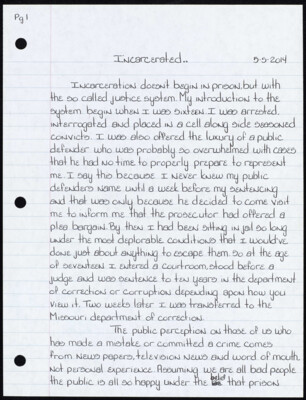 Pg 1
Incarcerated..
5-5-2014
Incarceration doesnt begin in prison, but with
the so called justice system. My introduction to the
system begin when I was sixteen I was arrested,
interrogated and placed in a cell along side seasoned
convicts. I was also offered the luxury of a public
defender who was probably so overwhelmed with cases
that he had no time to properly prepare to represent
me. I say this because I never knew my public
defenders name until a week before my sentencing
and that was only because he decided to come visit
me to inform me that the prosecutor had offered a
plea bargain. By then I had been sitting in jail so long
under the most deplorable conditions that I would've
done just about anything to escape them. so at the age
of seventeen I entered a courtroom, stood before a
judge and was sentence to ten years in the department
of correction or corruption depending apon how you
view it. Two weeks later I was transferred to the
Missouri department of correction.
The public perception on those of us who
has made a mistake or committed a crime comes
from news papers, television news and word of mouth.
Not personal experience. Assuming we are all bad people
the public is all so happy under the belief that prison